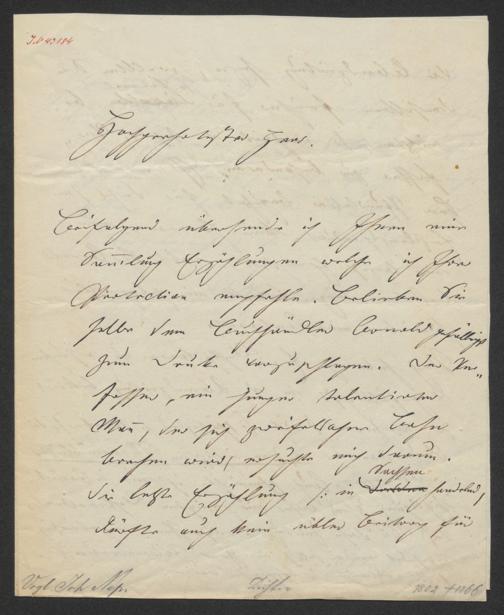 I.N 43184
Hochgeehrtester Herr.
Beifolgend übersende ich Ihnen eine
Sammlung Erzählungen welche ich Ihrer
Protection empfehle. Belieben Sie
selbe dem Buchhändler Arnold gefälligst
zum Drucke vorzuschlagen. Der Ver-
fasser, ein junger talentirter
Mann, der sich zweifelsohne Bahn
brechen wird, ersuchte mich darum.
Sachsen
Die letzte Erzählung /: in Dresden handelnd,
dürfte auch kein übler Beitrag für
Vogl Joh. Nep. Dichter 1802 +1866